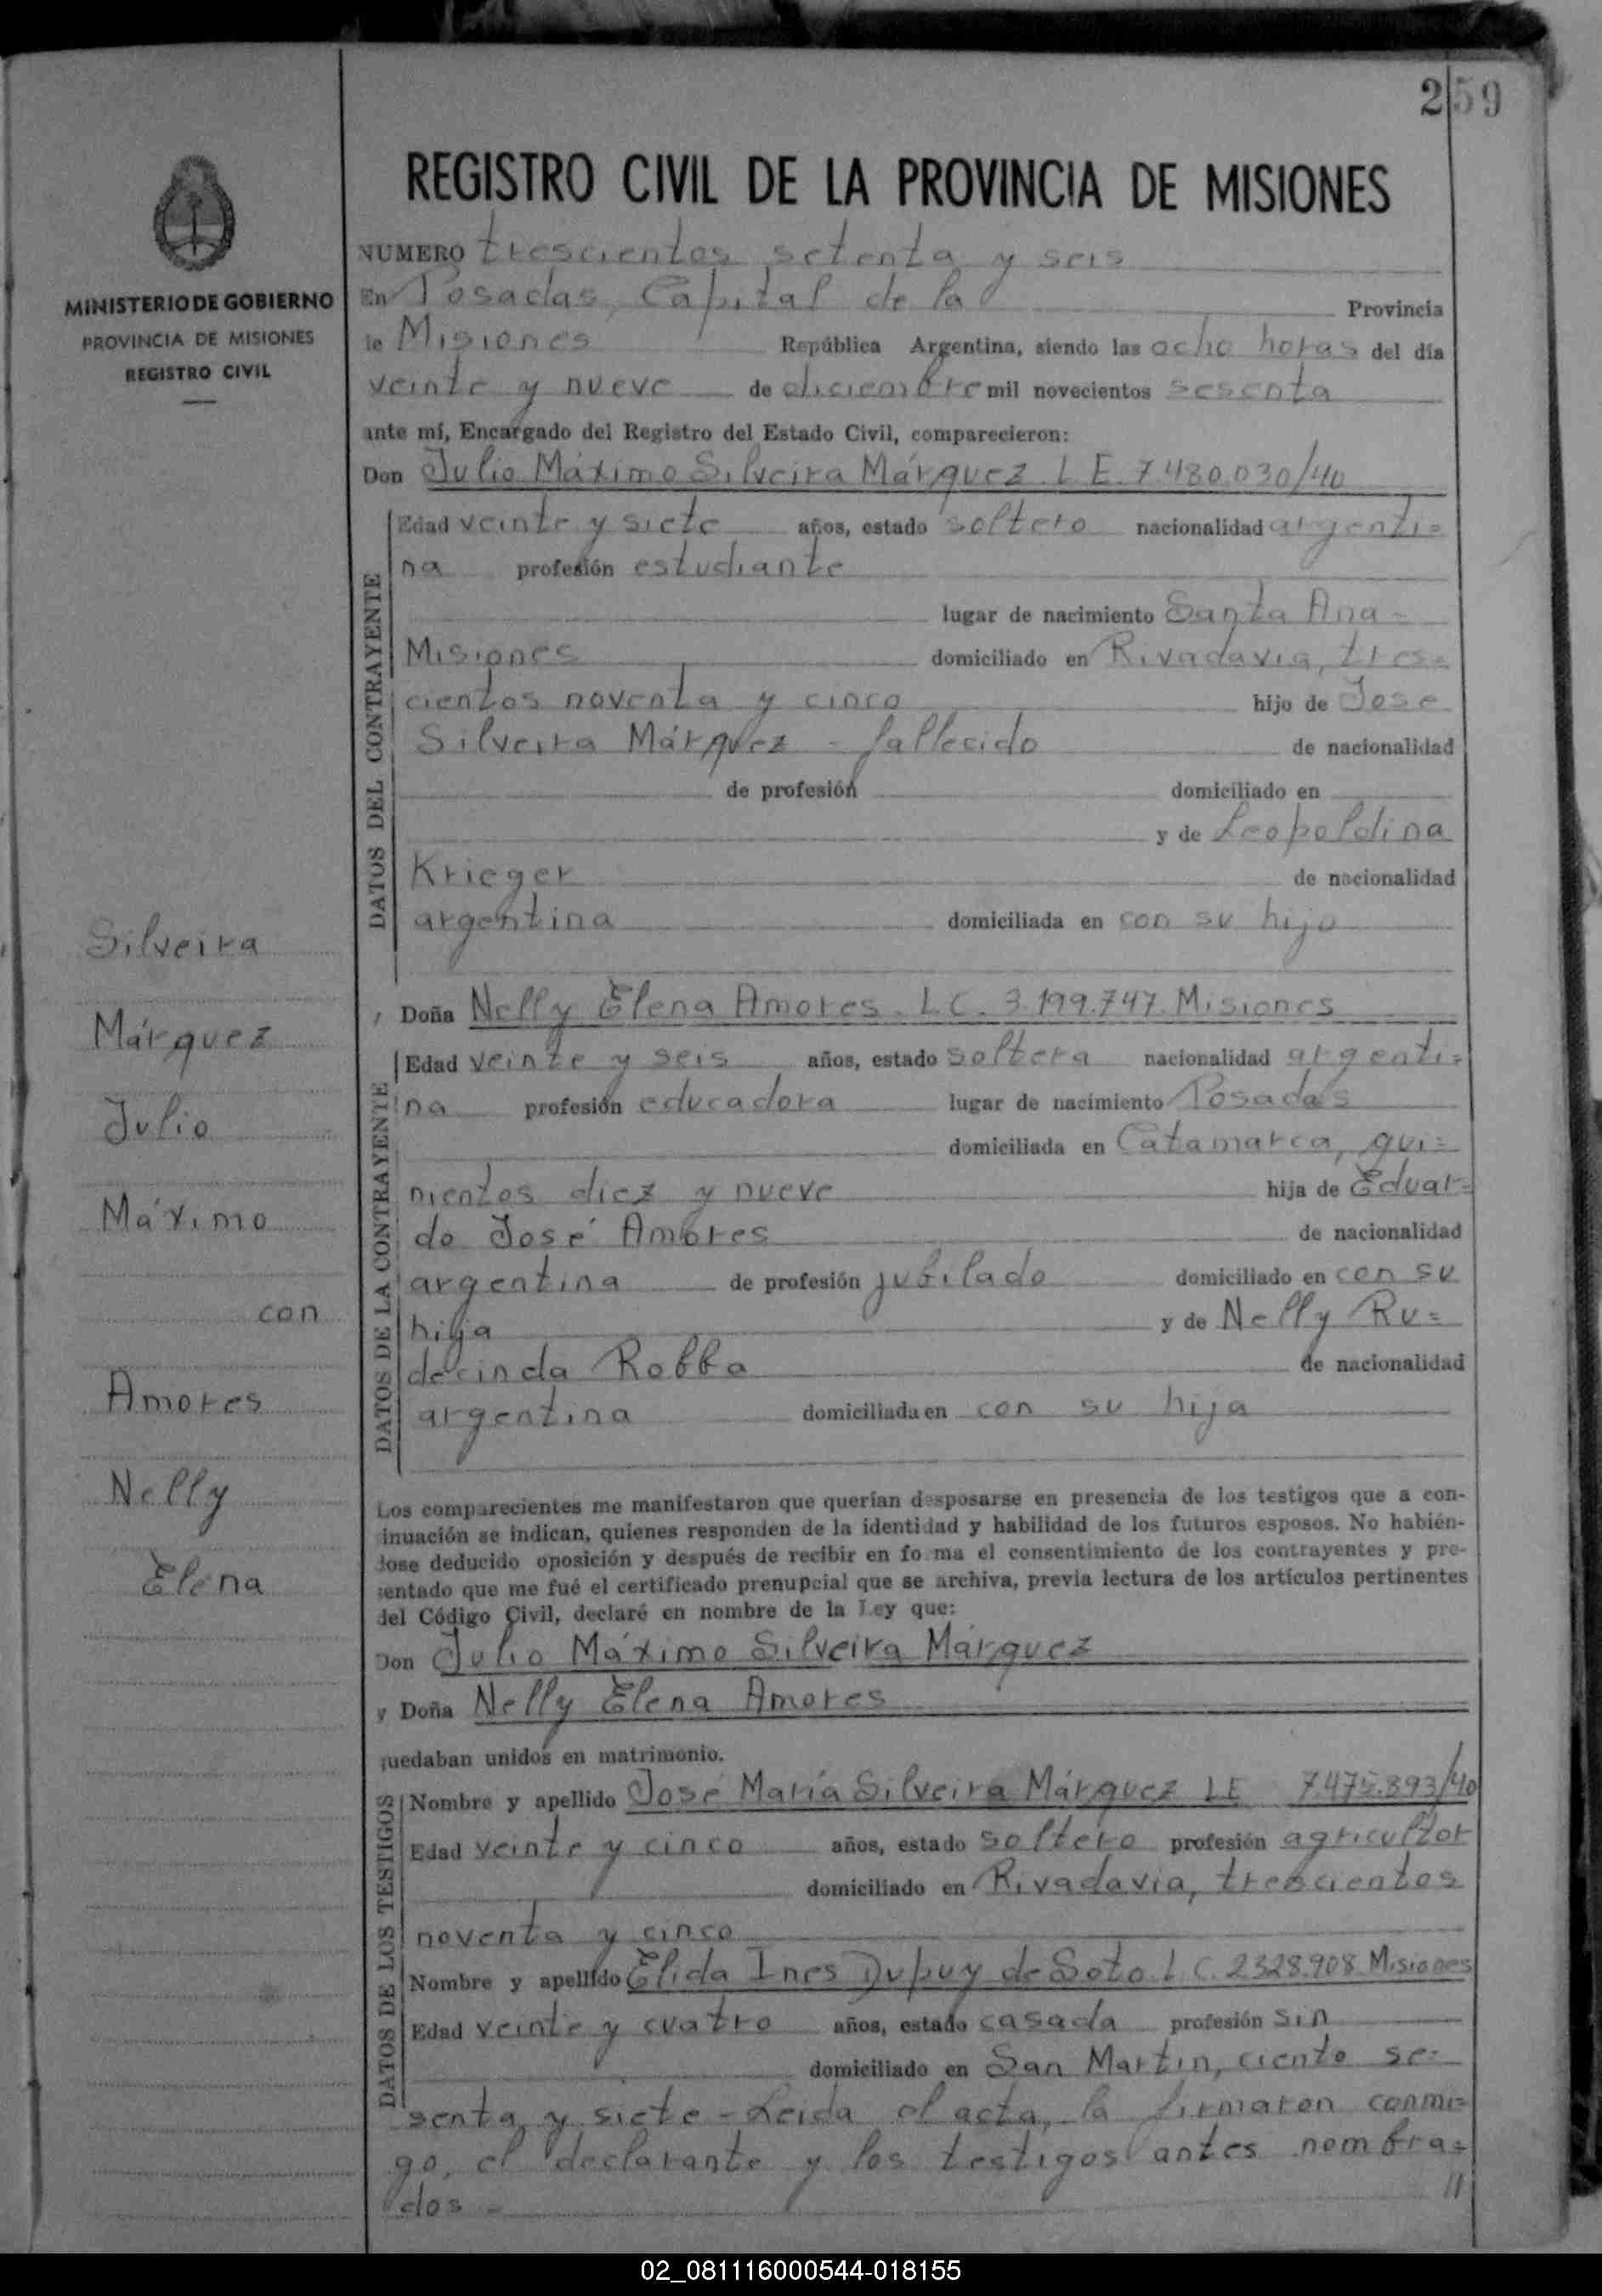 259
REGISTRO CIVIL DE LA PROVINCIA DE MISIONES
MINISTERIO DE GOBIERNO
PROVINCIA DE MISIONES
REGISTRO CIVIL
NUMERO trescientos setenta y seis
En Posadas, Capital de la Provincia
de Misiones República Argentina, siendo las ocho horas del día
veinte y nueve de diciembre mil novecientos sesenta
ante mí, Encargado del Registro del Estado Civil, comparecieron:
Don Julio Máximo Silveira Márquez L E 7.480.030/40
DATOS DEL CONTRAYENTE
Edad veinte y siete años, estado soltero nacionalidad argenti=
na profesión estudiante
lugar de nacimiento Santa Ana -
Misiones domiciliado en Rivadavia, tres=
cientos noventa y cinco hijo de Jose
Silveira Márquez - fallecido de nacionalidad
de profesión domiciliado en
y de Leopoldina
Krieger de nacionalidad
argentina domiciliada en con su hijo
Silveira
Márquez
Julio
Máximo
con
Amores
Nelly
Elena
y Doña Nelly Elena Amores. L.C. 3.199.747 Misiones
DATOS DE LA CONTRAYENTE
Edad veinte y seis años, estado soltera nacionalidad argenti=
na profesión educadora lugar de nacimiento Posadas
domiciliada en Catamarca, qui=
nientos diez y nueve hija de Eduar=
do José Amores de nacionalidad
argentina de profesión jubilado domiciliado en con su
hija y de Nelly Ru=
decinda Robba de nacionalidad
argentina domiciliada en con su hija
Los comparecientes me manifestaron que querían desposarse en presencia de los testigos que a con-
tinuación se indican, quienes responden de la identidad y habilidad de los futuros esposos. No habién-
dose deducido oposición y después de recibir en forma el consentimiento de los contrayentes y pre-
sentado que me fué el certificado prenupcial que se archiva, previa lectura de los artículos pertinentes
del Código Civil, declaré en nombre de la Ley que:
Don Julio Máximo Silveira Márquez
y Doña Nelly Elena Amores
quedaban unidos en matrimonio.
DATOS DE LOS TESTIGOS
Nombre y apellido José María Silveira Márquez LE 7.475.893/40
Edad veinte y cinco años, estado soltero profesión agricultor
domiciliado en Rivadavia, trescientos
noventa y cinco
Nombre y apellido Elida Ines Dupuy de Soto L C. 2328.908 Misiones
Edad veinte y cuatro años, estado casada profesión sin
domiciliado en San Martin, ciento se=
senta y siete - Leida el acta, la firmaron conmi=
go, el declarante y los testigos antes nombra=
dos - //
02_081116000544-018155